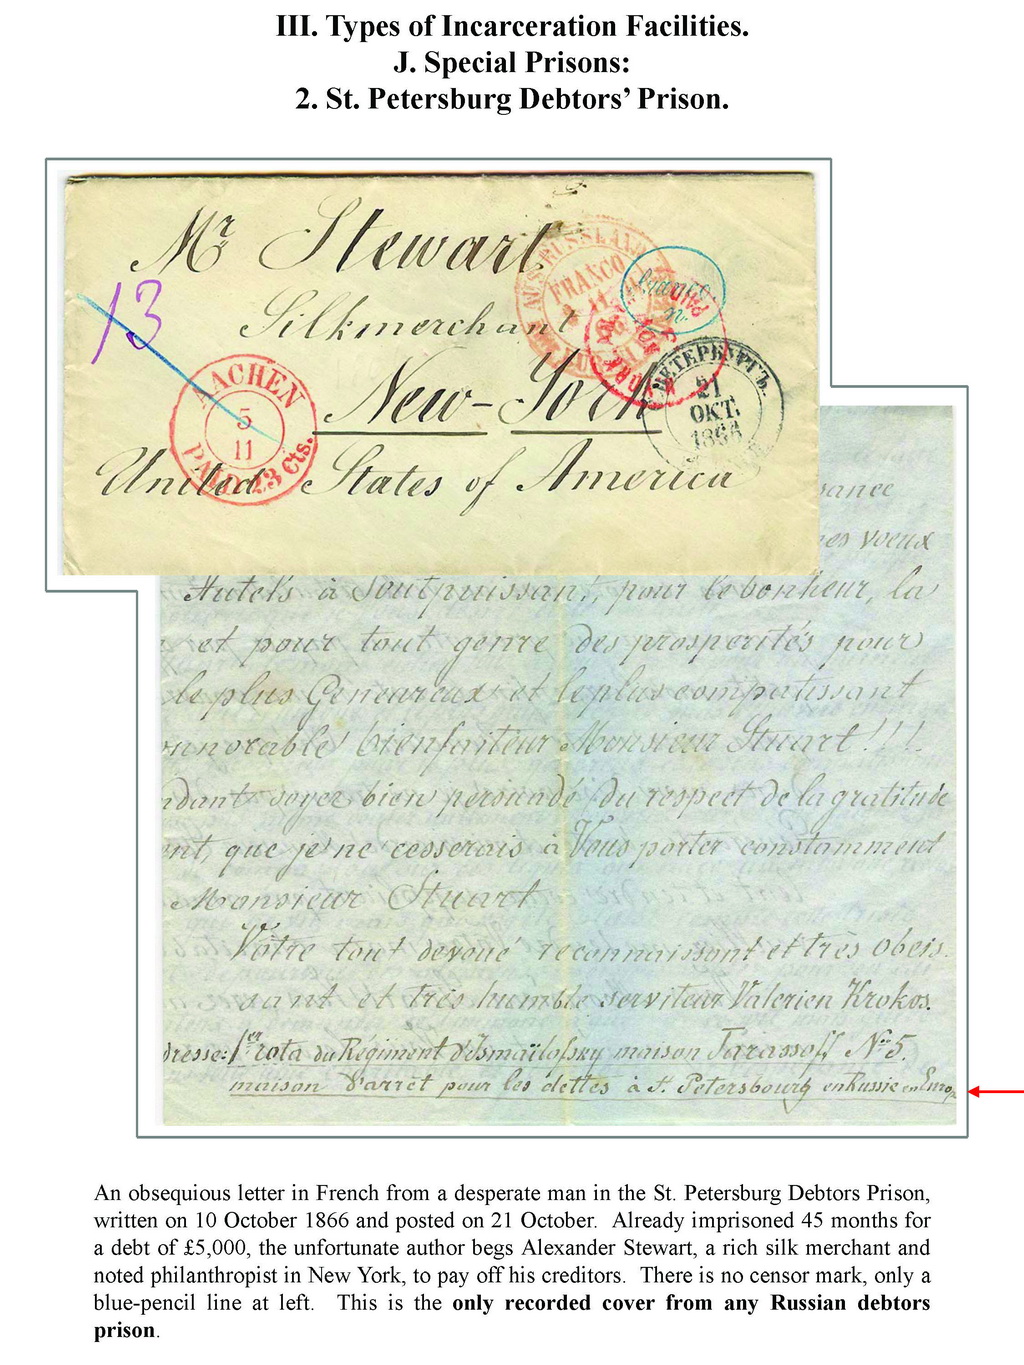 III. Types of Incarceration Facilities.
J. Special Prisons:
2. St. Petersburg Debtors’ Prison.
Mr Stewart
Silkmerchant
New-York
United States of America
13
AACHEN
5
11
PAID 23 Cts.
AUS RUSSLAND
FRANCO
Franco
PAID
ПЕТЕРБУРГЪ
21
ОКТ.
1866
sance
es voeux
Autels à Toutpuissant, pour le bonheur, la
et pour tout genre des prosperités pour
le plus Geneureaux et le plus compatissant
honorable bienfaiteur Monsieur Stuart!!!
dant soyez bien persuadé du respect de la gratitude
ent, que je ne cesserais à Vous porter constamment
Monsieur Stuart
Vôtre tout devoué reconnaissant et très obeis
sant et très humble serviteur Valerien Krokos.
dresse: 1er rota du Regiment d'Ismaïlofsky maison Tarassoff No 5.
maison d'arrêt pour les dettes à St. Petersbourg en Russie en Europ
An obsequious letter in French from a desperate man in the St. Petersburg Debtors Prison,
written on 10 October 1866 and posted on 21 October. Already imprisoned 45 months for
a debt of £5,000, the unfortunate author begs Alexander Stewart, a rich silk merchant and
noted philanthropist in New York, to pay off his creditors. There is no censor mark, only a
blue-pencil line at left. This is the only recorded cover from any Russian debtors
prison.